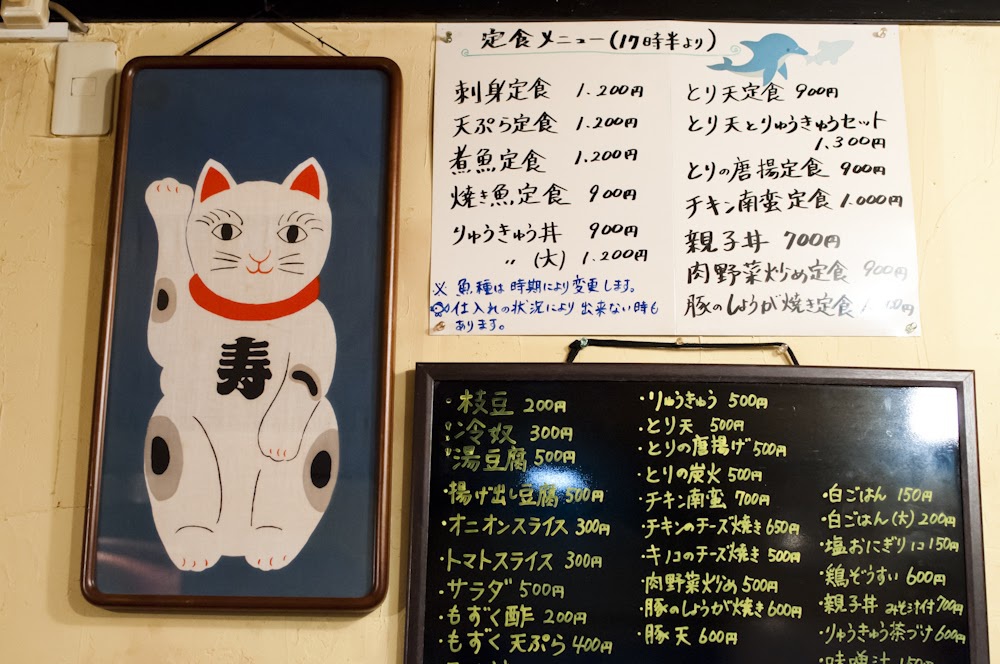 定食メニュー(17時半より)
刺身定食 1.200円
天ぷら定食 1.200円
煮魚定食 1.200円
焼き魚定食 900円
りゅうきゅう丼 900円
〃 (大) 1.200円
※ 魚種は時期により変更します。
仕入れの状況により出来ない時も
あります。
とり天定食 900円
とり天とりゅうきゅうセット
1.300円
とりの唐揚定食 900円
チキン南蛮定食 1.000円
親子丼 700円
肉野菜炒め定食 900円
豚のしょうが焼き定食
寿
・枝豆 200円
・冷奴 300円
・湯豆腐 500円
・揚げ出し豆腐 500円
・オニオンスライス 300円
・トマトスライス 300円
・サラダ 500円
・もずく酢 200円
・もずく天ぷら 400円
・りゅうきゅう 500円
・とり天 500円
・とりの唐揚げ 500円
・とりの炭火 500円
・チキン南蛮 700円
・チキンのチーズ焼き 650円
・キノコのチーズ焼き 500円
・肉野菜炒め 500円
・豚のしょうが焼き 600円
・豚天 600円
・白ごはん 150円
・白ごはん(大) 200円
・塩おにぎり1コ 150円
・鶏ぞうすい 600円
・親子丼 みそ汁付 700円
・りゅうきゅう茶づけ 600円
・味噌汁 150円